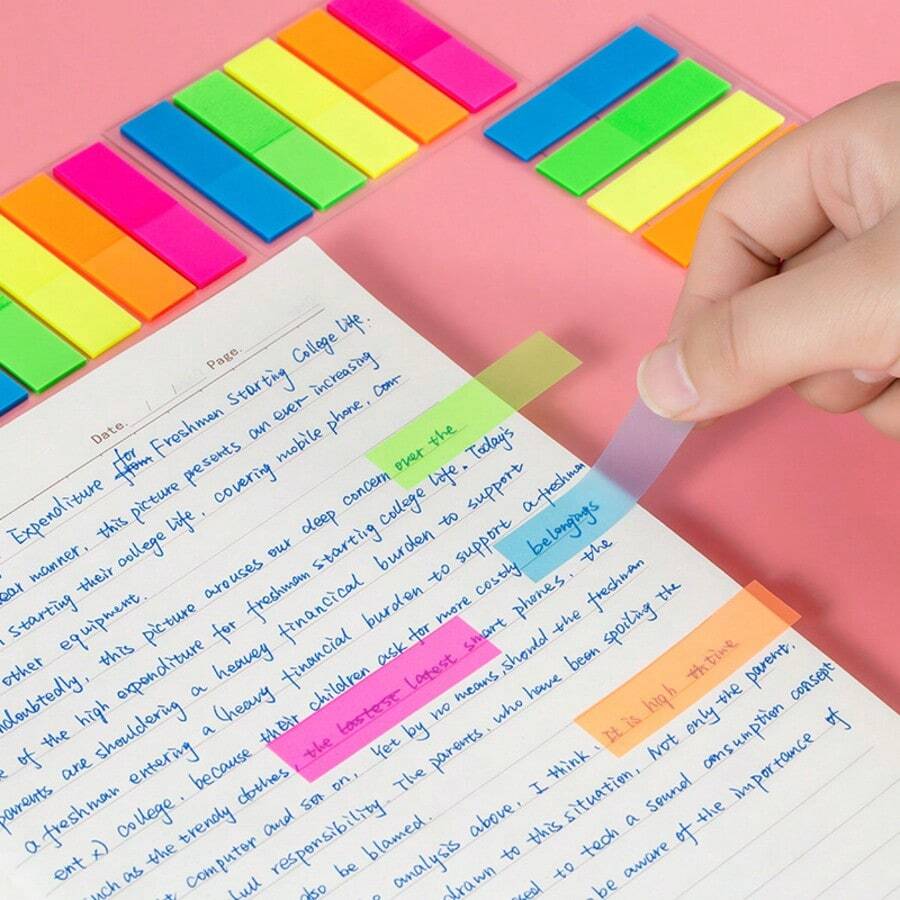 Date. / / Page.
Expenditure for Freshmen Starting College Life.
ear manner, this picture presents an ever increasing
starting their college life, covering mobile phone, com
other equipment.
ndoubtedly, this picture arouses our deep concern over the
e of the high expenditure for freshman starting college life. Today's
parents are shouldering a heavey financical burden to support
a freshman entering a (heavy financial burden to support a freshman
ent x) college, because their children ask for more costly belongings
such as the trendy clothes, the lastest latest smart phones, the
t computer and so on. Yet by no means should the freshman
full responsibility. The parents, who have been spoiling the
also be blamed.
e analysis above, I think, It is high thtime
drawn to this situation, Not only the parent,
sed to tech a sound consumption consept
be aware of the importance of